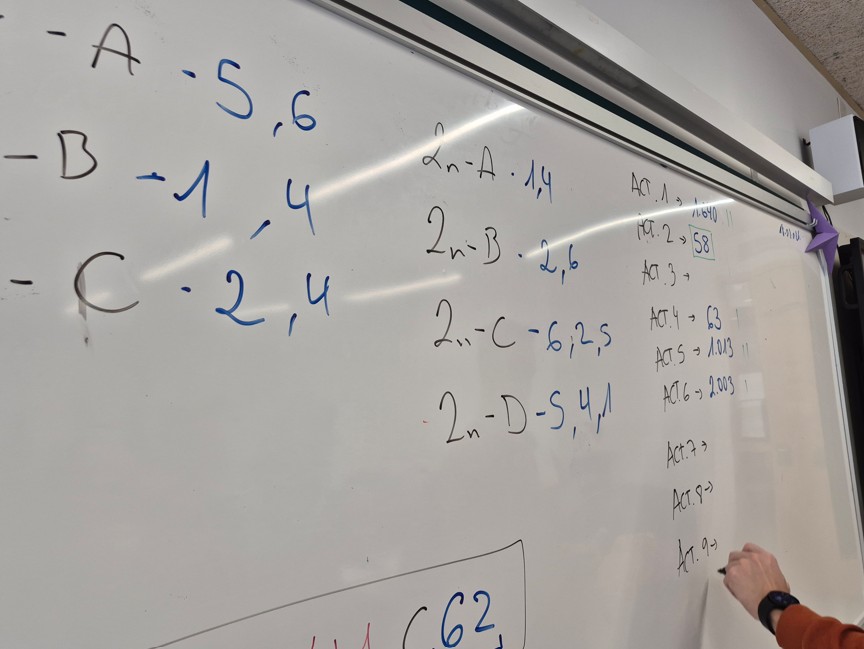 - A · 5,6
- B - 1,4
- C · 2,4
2n-A · 1,4
2n-B · 2,6
2n-C - 6,2,5
2n-D - 5,4,1
ACT. 1 → 1.640 "
ACT. 2 → 58
ACT. 3 →
ACT. 4 → 63
ACT. 5 → 1.013 "
ACT. 6 → 2.003 '
ACT. 7 →
ACT. 8 →
ACT. 9 →
62